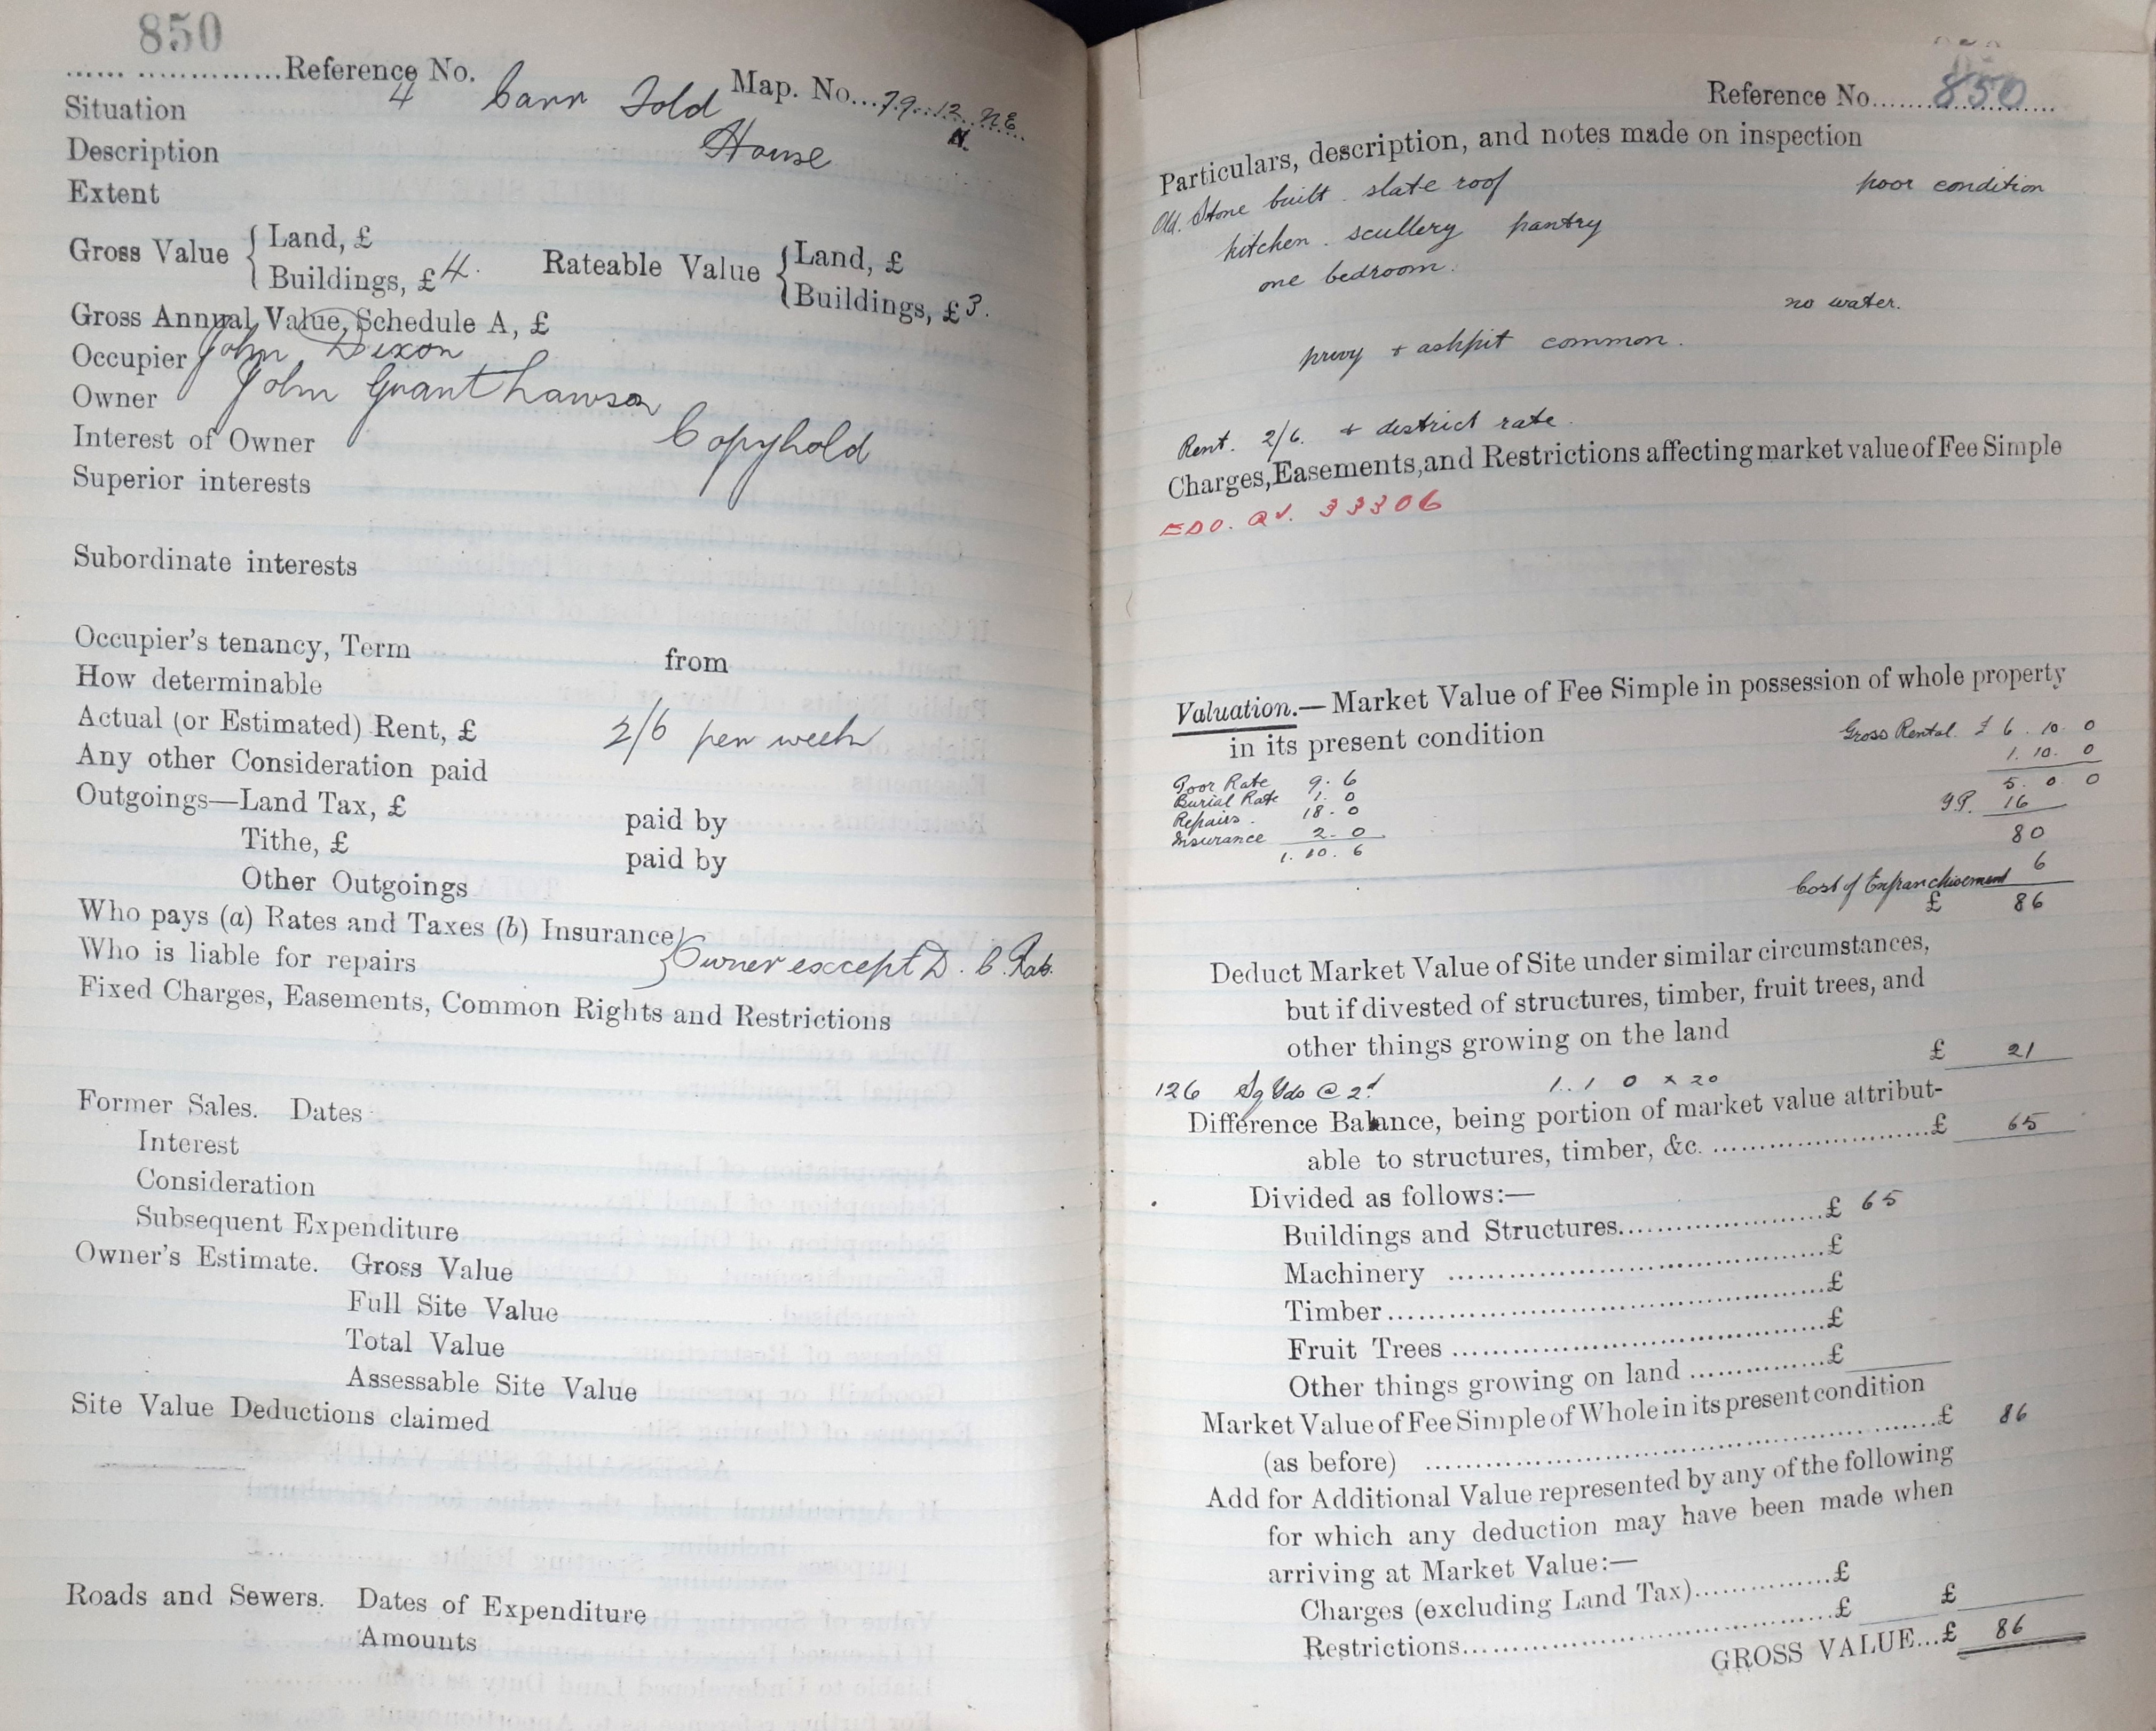 850
Reference No. Map. No... 79. 12. NE
Situation 4 Carr Fold
N.
Description House
Extent
Gross Value { Land, £
Buildings, £ 4. Rateable Value { Land, £
Buildings, £ 3.
Gross Annual Value, Schedule A, £
Occupier John Dixon
Owner John Grant Lawson
Interest of Owner Copyhold
Superior interests
Subordinate interests
Occupier's tenancy, Term from
How determinable
Actual (or Estimated) Rent, £ 2/6 per week
Any other Consideration paid
Outgoings—Land Tax, £ paid by
Tithe, £ paid by
Other Outgoings
Who pays (a) Rates and Taxes (b) Insurance
Who is liable for repairs } Owner except D. C. Rate.
Fixed Charges, Easements, Common Rights and Restrictions
Former Sales. Dates
Interest
Consideration
Subsequent Expenditure
Owner's Estimate. Gross Value
Full Site Value
Total Value
Assessable Site Value
Site Value Deductions claimed
Roads and Sewers. Dates of Expenditure
Amounts
Reference No. 850
Particulars, description, and notes made on inspection
Old. Stone built. slate roof poor condition
kitchen. scullery pantry
one bedroom.
no water.
privy + ashpit common.
Rent. 2/6. + district rate.
Charges, Easements, and Restrictions affecting market value of Fee Simple
EDO. QV. 33306
Valuation.—Market Value of Fee Simple in possession of whole property
in its present condition Gross Rental £ 6. 10. 0
Poor Rate 9. 6 1. 10. 0
Burial Rate 1. 0 5. 0. 0
Repairs. 18. 0 YP. 16
Insurance 2. 0 80
1. 10. 6
Cost of Enfranchisement 6
£ 86
Deduct Market Value of Site under similar circumstances,
but if divested of structures, timber, fruit trees, and
other things growing on the land £ 21
126 Sq Yds @ 2d 1. 1 0 x 20
Difference Balance, being portion of market value attribut-
able to structures, timber, &c. £ 65
Divided as follows:—
Buildings and Structures £ 65
Machinery £
Timber £
Fruit Trees £
Other things growing on land £
Market Value of Fee Simple of Whole in its present condition
(as before) £ 86
Add for Additional Value represented by any of the following
for which any deduction may have been made when
arriving at Market Value:—
Charges (excluding Land Tax) £
Restrictions £ £
GROSS VALUE...£ 86